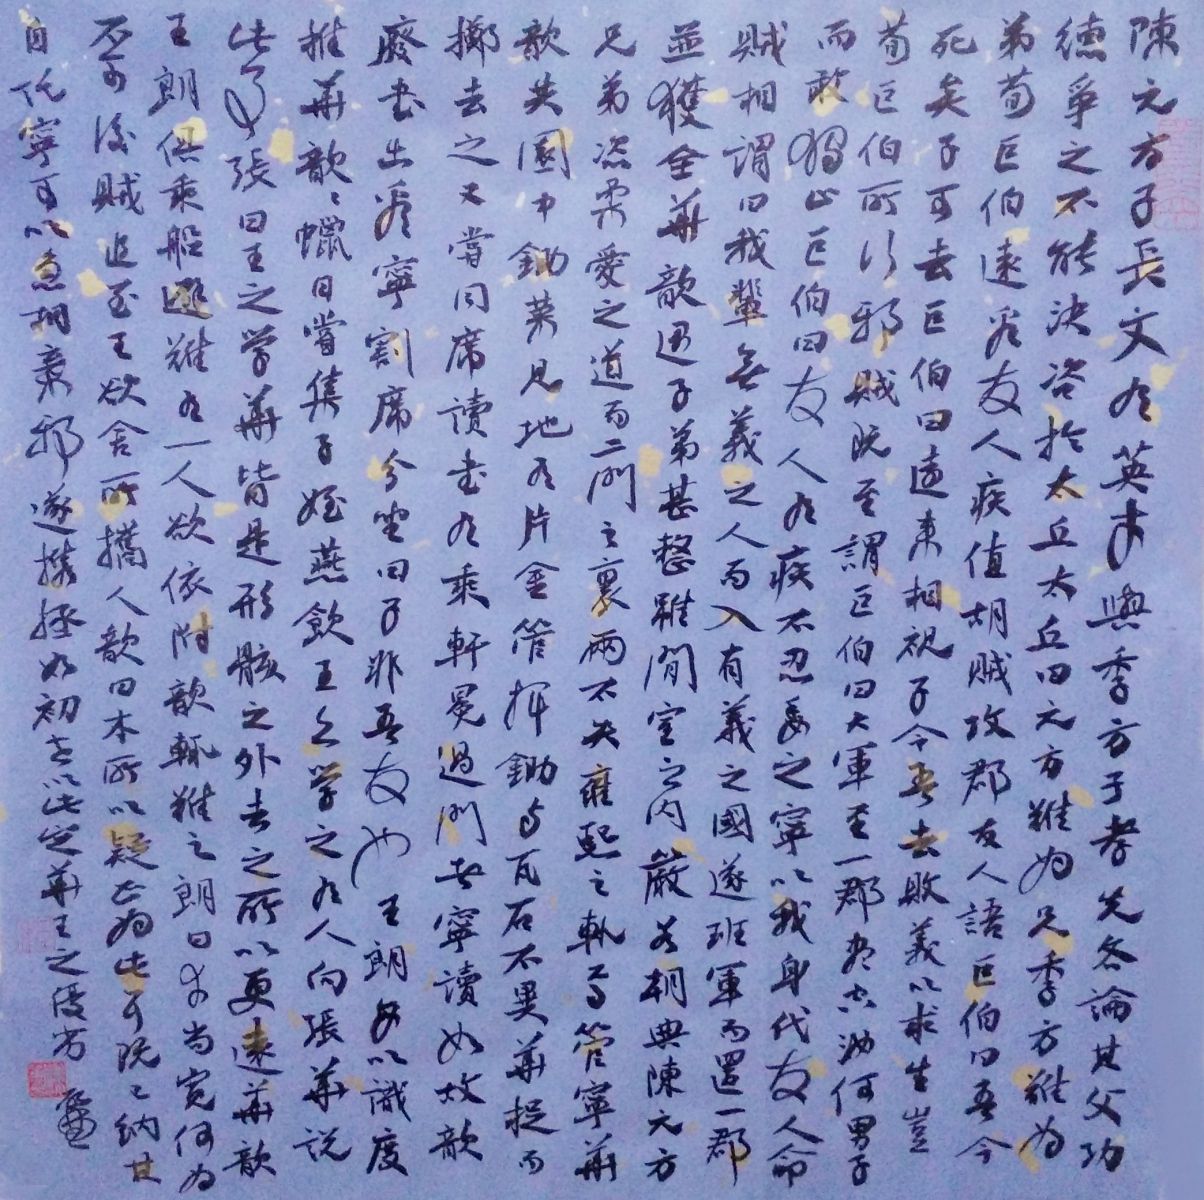 陳元方子長文有英才與季方子孝先各論其父功
德爭之不能決咨於太丘太丘曰元方難為兄季方難為
弟荀巨伯遠看友人疾值胡賊攻郡友人語巨伯曰吾今
死矣子可去巨伯曰遠來相視子令吾去敗義以求生豈
荀巨伯所行邪賊既至謂巨伯曰大軍至一郡盡空汝何男子
而敢獨止巨伯曰友人有疾不忍委之寧以我身代友人命
賊相謂曰我輩無義之人而入有義之國遂班軍而還一郡
並獲全華歆遇子弟甚整雖閒室之內嚴若朝典陳元方
兄弟恣柔愛之道而二門之裏兩不失雍熙之軌焉管寧華
歆共園中鋤菜見地有片金管揮鋤與瓦石不異華捉而
擲去之又嘗同席讀書有乘軒冕過門者寧讀如故歆
廢書出看寧割席分坐曰子非吾友也王朗每以識度
推華歆歆蠟日嘗集子姪燕飲王亦學之有人向張華說
此事張曰王之學華皆是形骸之外去之所以更遠華歆
王朗俱乘船避難有一人欲依附歆輒難之朗曰幸尚寬何為
不可後賊追至王欲舍所攜人歆曰本所以疑正為此耳既已納其
自託寧可以急相棄邪遂攜拯如初世以此定華王之優劣